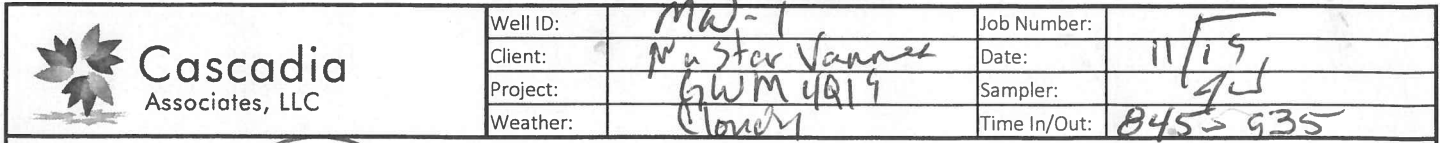 Cascadia
Associates, LLC
Well ID: MW-1 Job Number:
Client: NuStar Vannex Date: 11/19
Project: GWM 4Q19 Sampler:
Weather: Cloudy Time In/Out: 845 > 935